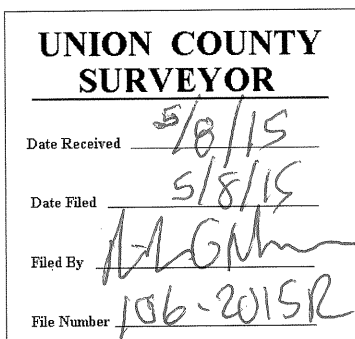 UNION COUNTY
SURVEYOR
Date Received 5/8/15
Date Filed 5/8/15
Filed By
File Number 106-2015R